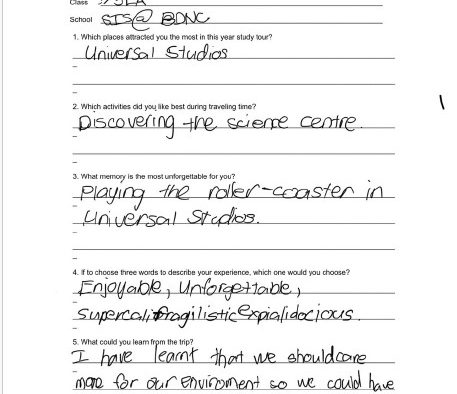 Class
School SIS@ BDNC
1. Which places attracted you the most in this year study tour?
Universal Studios
2. Which activities did you like best during traveling time?
Discovering the science centre.
3. What memory is the most unforgettable for you?
Playing the roller-coaster in
Universal Studios.
4. If to choose three words to describe your experience, which one would you choose?
Enjoyable, Unforgettable,
Supercalifragilisticexpialidocious.
5. What could you learn from the trip?
I have learnt that we should care
more for our enviroment so we could have